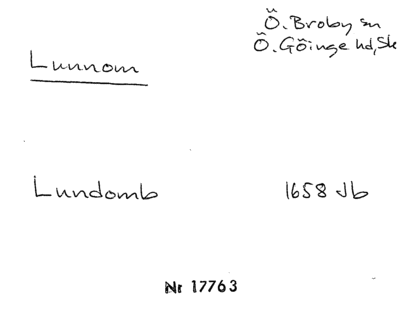 Ö. Broby sn
Ö. Göinge hd, Sk
Lunnom
Lundomb 1658 Jb
Nr 17763